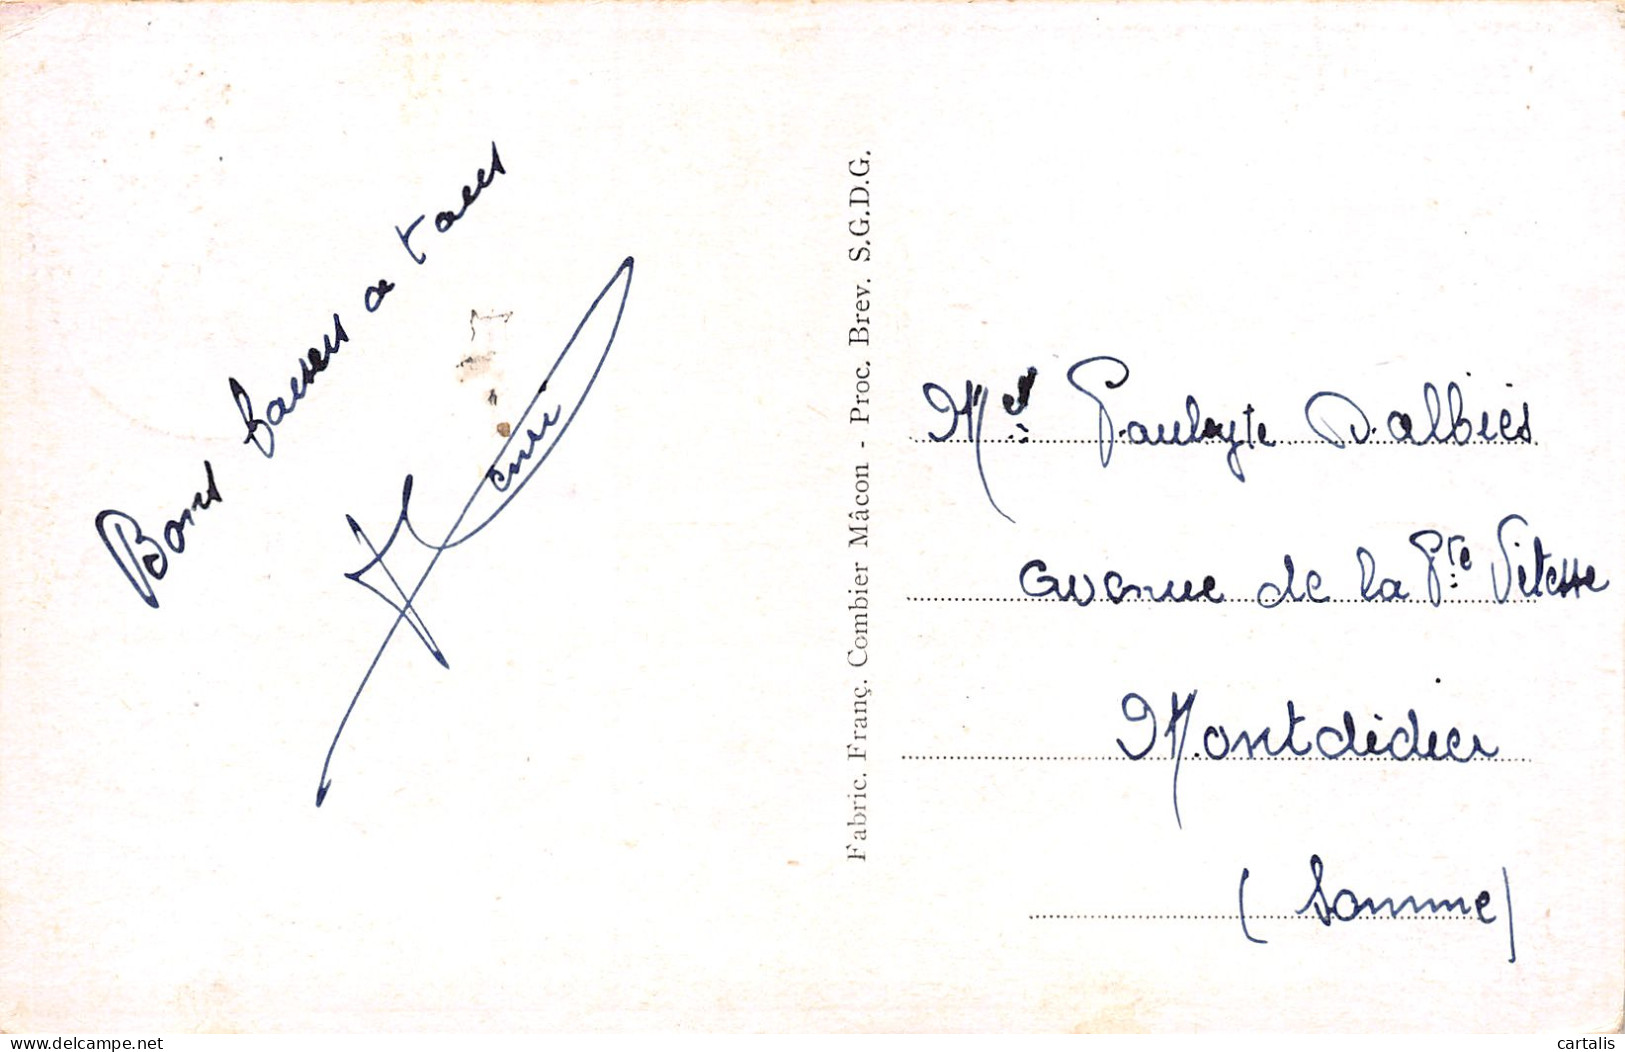 Bons baisers a tous
Fabric. Franç. Combier Mâcon - Proc. Brev. S.G.D.G.
Dalbiés
avenue de la Pte Vitesse
Montdidier
(Somme)
delcampe.net
cartalis